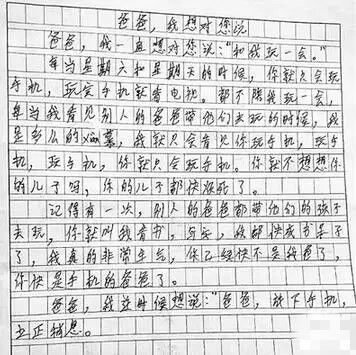 爸爸，我想对您说
爸爸，我一直想对您说："和我玩一会。"
每当星期六和星期天的时候，你就只会玩
手机，玩完手机就看电视。都不陪我玩一会，
每当我看见别人的爸爸带他们去玩的时候，我
是多么的xian慕，我就只会看见你玩手机，玩手
机，玩手机，你就只会玩手机。你就不想想你
的儿子吗，你的儿子都快疯了。
记得有一次，别人的爸爸都带他们的孩子
去玩，你就叫我看书，写字，我都快成书呆子
了，我真的非常生气，你已经快不是我爸了，
你快是手机的爸爸了。
爸爸，我这时候想说："爸爸，放下手机，
立正稍息。